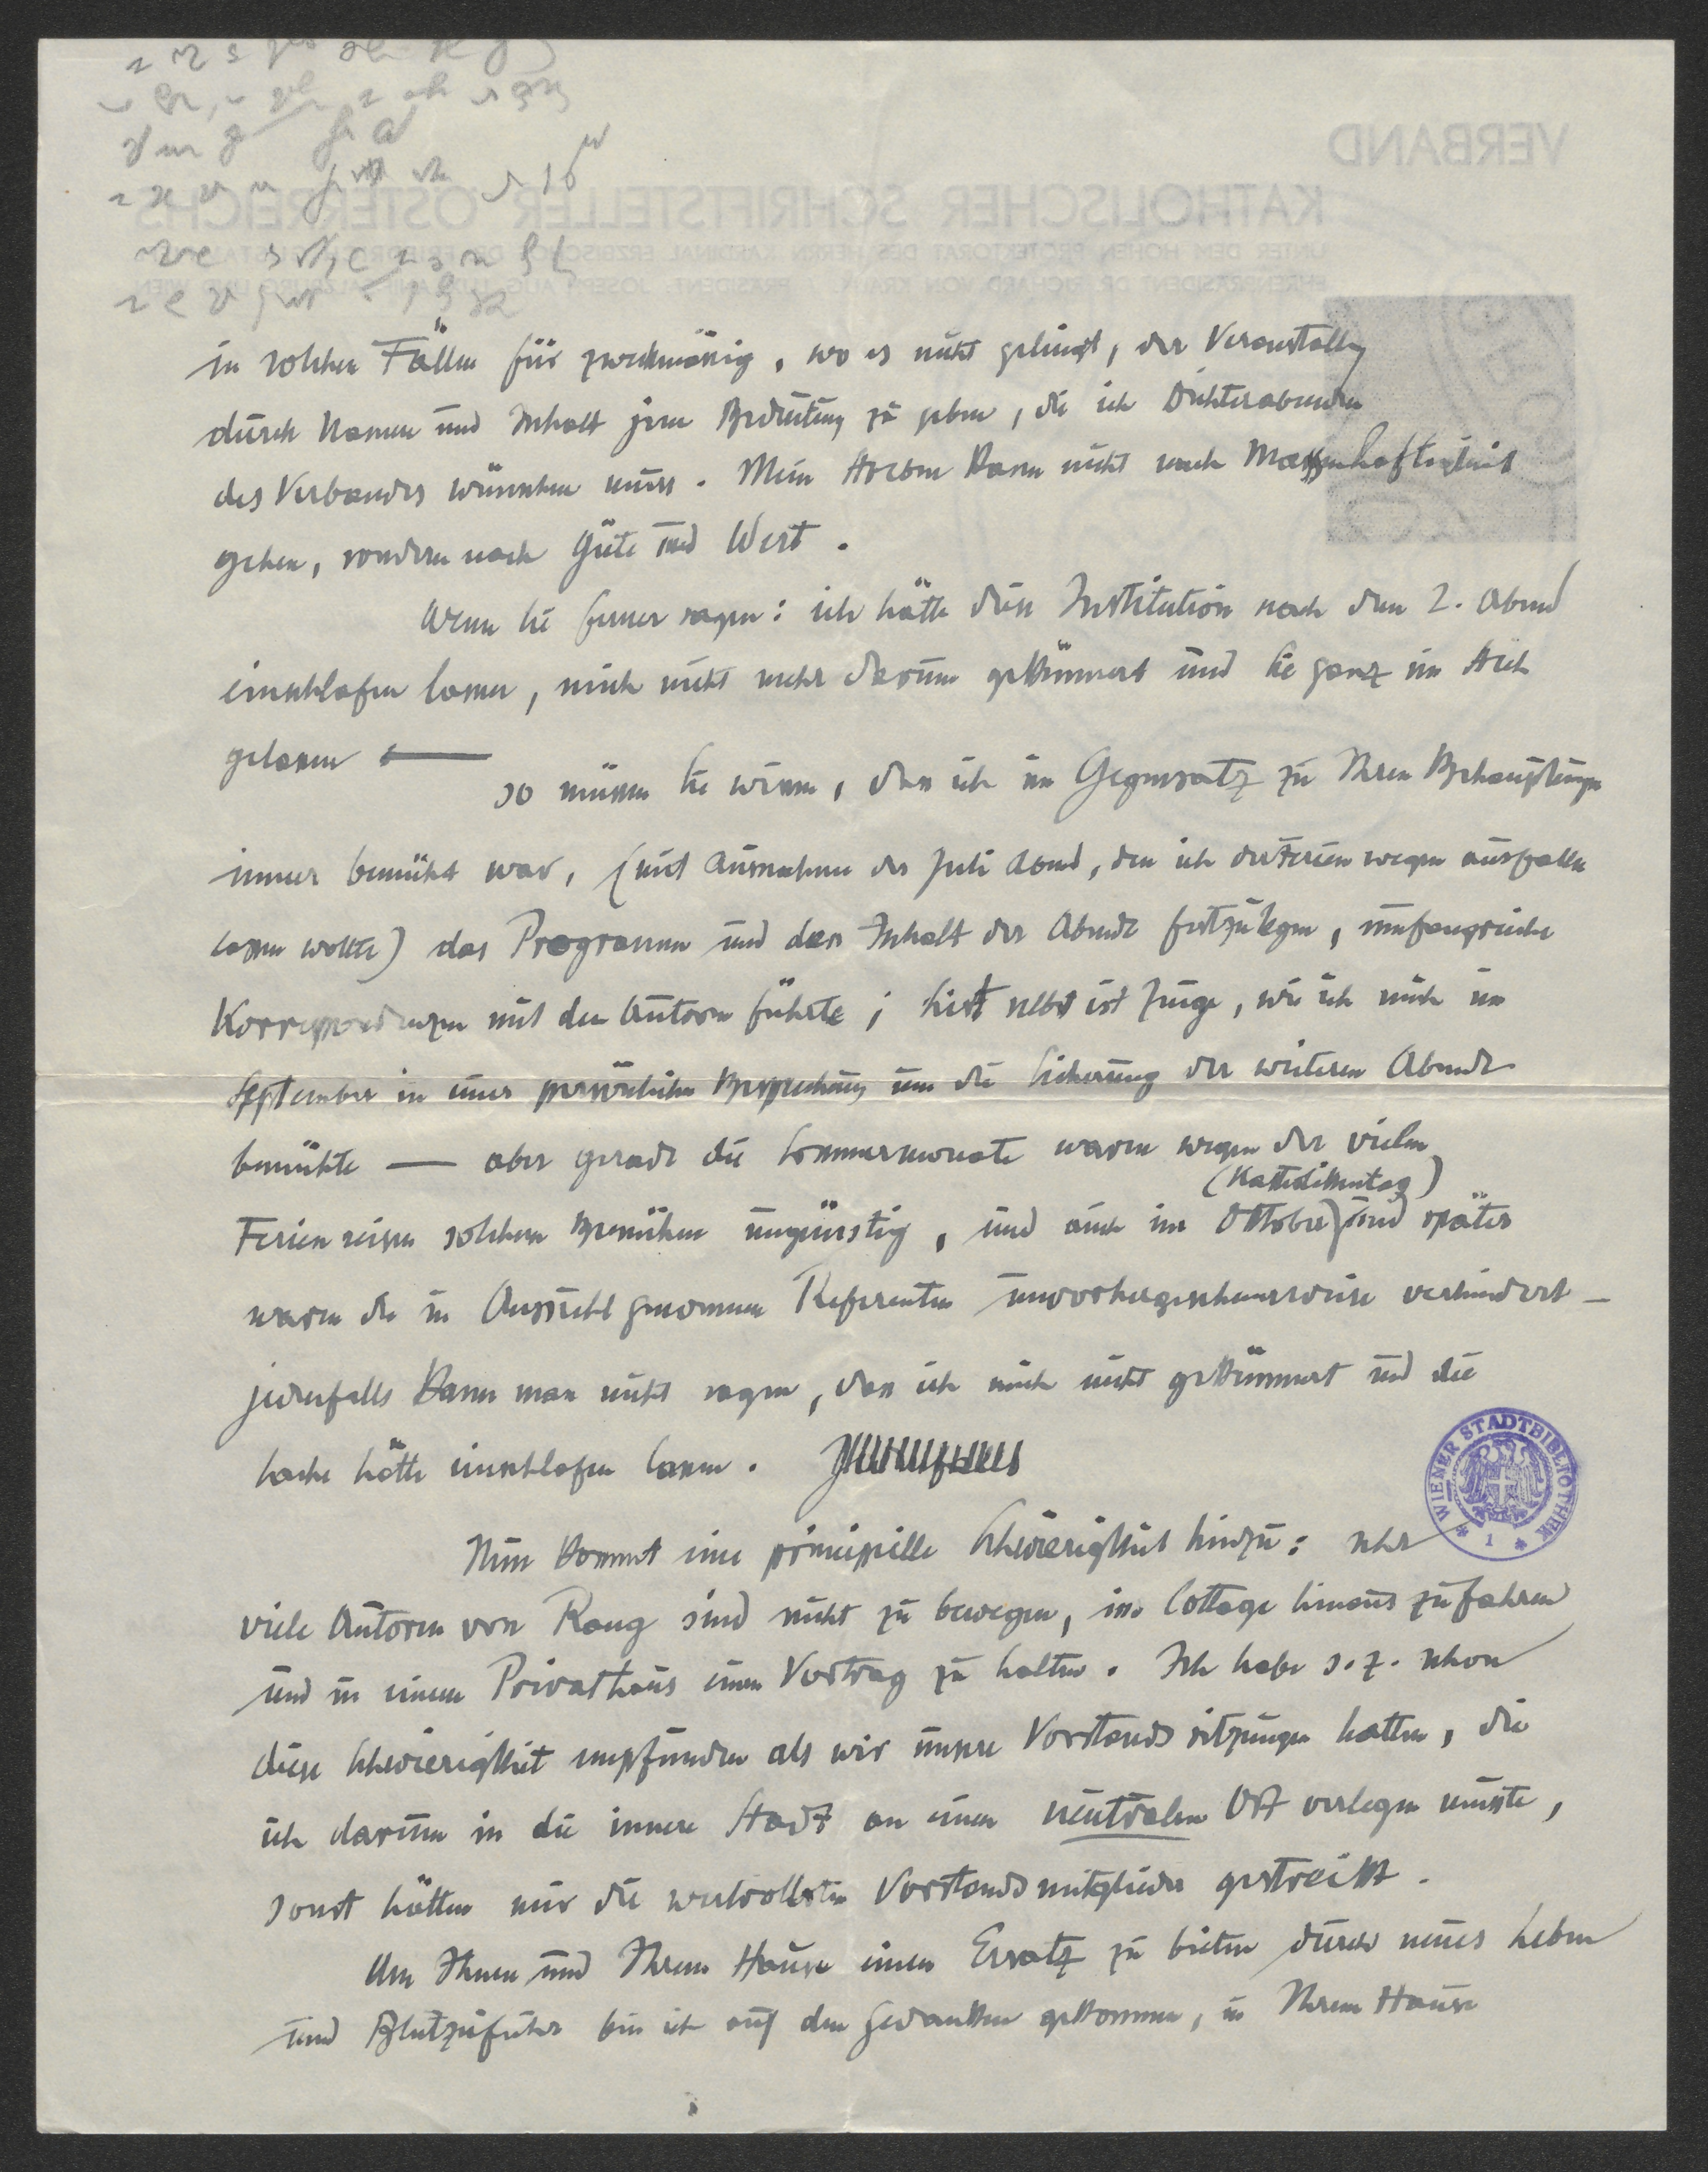 in solchen Fällen für zweckmässig, wo es nicht gelingt, der Veranstaltung
durch Namen und Inhalt jene Bedeutung zu geben, die ich Dichterabenden
des Verbandes wünschen muss. Mein Streben kann nicht nach Massenhaftigkeit
gehen, sondern nach Güte und Wert.
Wenn Sie ferner sagen: ich hätte diese Institution nach dem 2. Abend
einschlafen lassen, mich nicht mehr darum gekümmert und Sie ganz im Stich
gelassen —
so müssen Sie wissen, dass ich im Gegensatz zu Ihren Behauptungen
immer bemüht war, (mit Ausnahme des Juli Abend, den ich der Ferien wegen ausfallen
lassen wollte) das Programm und den Inhalt der Abende festzulegen, umfangreiche
Korrespondenzen mit den Autoren führte; selbst ist Zeuge, wie ich mich im
September in einer persönlichen Besprechung um die Sicherung der weiteren Abende
bemühte — aber gerade die Sommermonate waren wegen der vielen
Ferienreisen solchem Bemühen ungünstig, und auch im Oktober (Katholikentag) und später
waren die in Aussicht genommenen Referenten unvorhergesehenerweise verhindert —
jedenfalls kann man nicht sagen, dass ich mich nicht gekümmert und die
Sache hätte einschlafen lassen.
Nun kommt eine prinzipielle Schwierigkeit hinzu: sehr
viele Autoren von Rang sind nicht zu bewegen, ins Cottage hinaus zu fahren
und in einem Privathaus einen Vortrag zu halten. Ich habe s. z. schon
diese Schwierigkeit empfunden als wir unsere Vorstandssitzungen hatten, die
ich darum in die innere Stadt an einen neutralen Ort verlegen musste,
sonst hätten mir die wertvollsten Vorstandsmitglieder gestreikt.
Um Ihnen und Ihrem Hause einen Ersatz zu bieten durch neues Leben
und Blutzufuhr bin ich auf den Gedanken gekommen, in Ihrem Hause
WIENER STADTBIBLIOTHEK
1
VERBAND
KATHOLISCHER SCHRIFTSTELLER ÖSTERREICHS